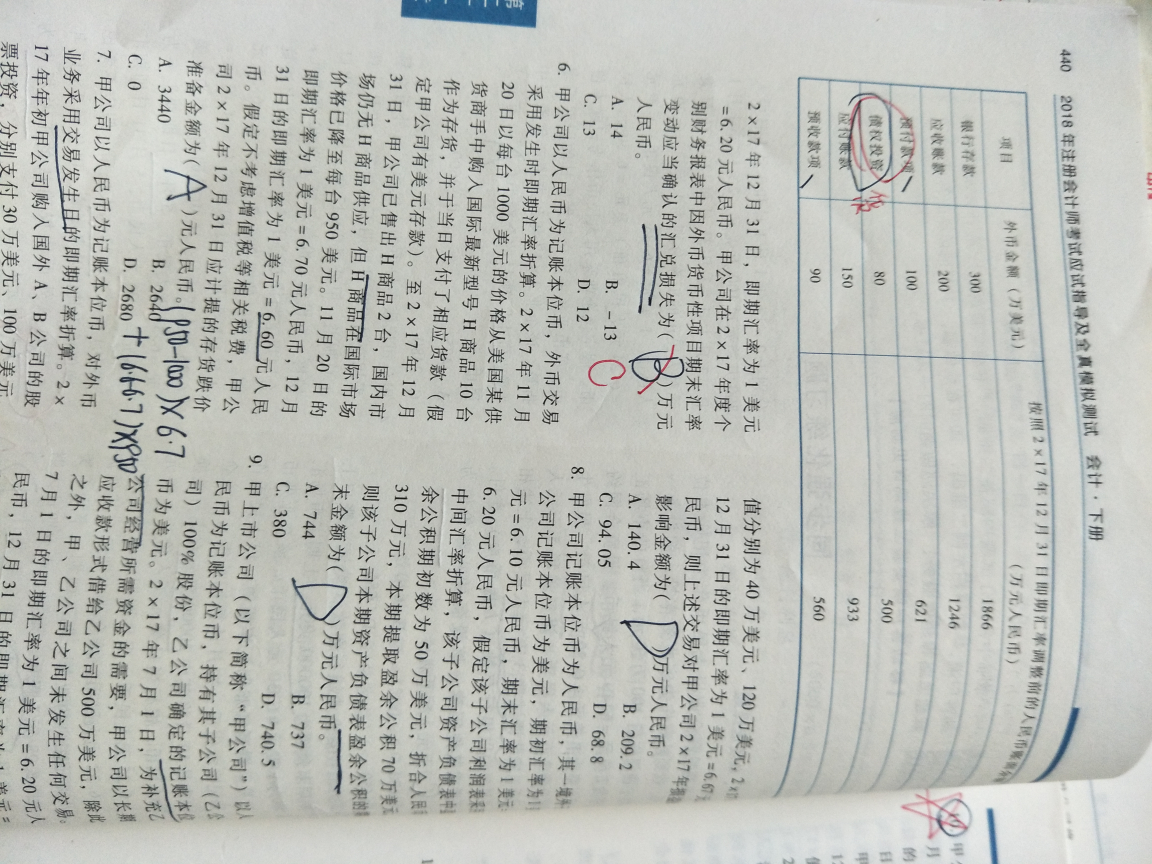 440 2018年注册会计师考试应试指导及全真模拟测试 会计·下册
项目 外币金额(万美元) 按照2×17年12月31日即期汇率调整前的人民币账面余
(万元人民币)
银行存款 300 1866
应收账款 200 1246
预付款项 100 621
债权投资 80 500
应付账款 150 933
预收款项 90 560
2×17年12月31日,即期汇率为1美元
=6.20元人民币。甲公司在2×17年度个
别财务报表中因外币货币性项目期末汇率
变动应当确认的汇兑损失为( B )万元
人民币。
A. 14 B. -13
C. 13 D. 12
C
6. 甲公司以人民币为记账本位币,外币交易
采用发生时即期汇率折算。2×17年11月
20日以每台1000美元的价格从美国某供
货商手中购入国际最新型号H商品10台
作为存货,并于当日支付了相应货款(假
定甲公司有美元存款)。至2×17年12月
31日,甲公司已售出H商品2台,国内市
场仍无H商品供应,但H商品在国际市场
价格已降至每台950美元。11月20日的
即期汇率为1美元=6.70元人民币,12月
31日的即期汇率为1美元=6.60元人民
币。假定不考虑增值税等相关税费,甲公
司2×17年12月31日应计提的存货跌价
准备金额为( A )元人民币。
A. 3440 B. 2640
C. 0 D. 2680
(950-1000)×6.7
7. 甲公司以人民币为记账本位币,对外币
业务采用交易发生日的即期汇率折算。2×
17年年初甲公司购入国外A、B公司的股
票投资,分别支付30万美元、100万美元
值分别为40万美元、120万美元。2×
12月31日的即期汇率为1美元=6.67
民币,则上述交易对甲公司2×17年
影响金额为( D )万元人民币。
A. 140.4 B. 209.2
C. 94.05 D. 68.8
8. 甲公司记账本位币为人民币,其一境外
公司记账本位币为美元,期初汇率为1
元=6.10元人民币,期末汇率为1美元
6.20元人民币,假定该子公司利润表采
中间汇率折算,该子公司资产负债表中
余公积期初数为50万美元,折合人民
310万元,本期提取盈余公积70万美元
则该子公司本期资产负债表盈余公积的
末金额为( D )万元人民币。
A. 744 B. 737
C. 380 D. 740.5
9. 甲上市公司(以下简称“甲公司”)以人
民币为记账本位币,持有其子公司(乙公
司)100%股份,乙公司确定的记账本位
币为美元。2×17年7月1日,为补充乙
公司经营所需资金的需要,甲公司以长期
应收款形式借给乙公司500万美元,除此
之外,甲、乙公司之间未发生任何交易。
7月1日的即期汇率为1美元=6.20元人
民币,12月31日的即期汇率为1美元=